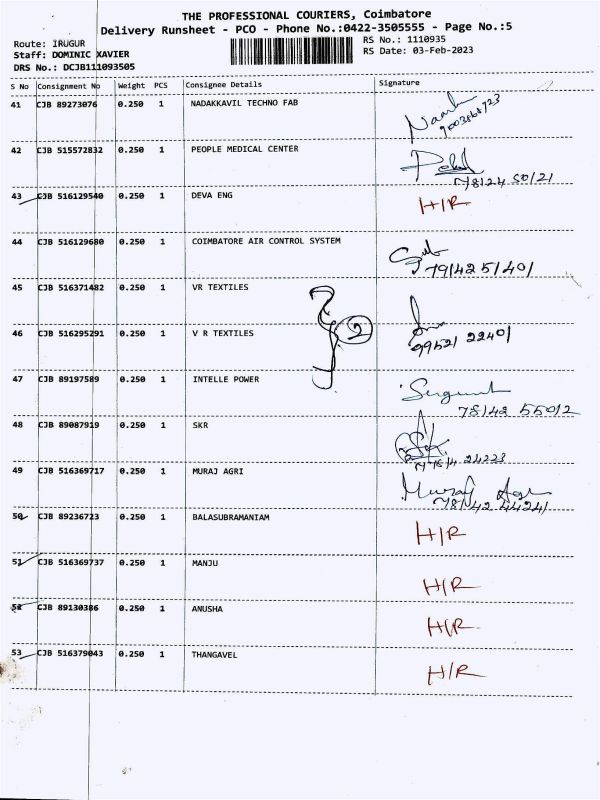 THE PROFESSIONAL COURIERS, Coimbatore
Delivery Runsheet - PCO - Phone No.:0422-3505555 - Page No.:5
Route: IRUGUR
RS No.: 1110935
Staff: DOMINIC XAVIER
RS Date: 03-Feb-2023
DRS No.: DCJB111093505
S No Consignment No Weight PCS Consignee Details Signature
41 CJB 89273076 0.250 1 NADAKKAVIL TECHNO FAB
42 CJB 515572832 0.250 1 PEOPLE MEDICAL CENTER
43 CJB 516129540 0.250 1 DEVA ENG H/R
44 CJB 516129680 0.250 1 COIMBATORE AIR CONTROL SYSTEM
7914251401
45 CJB 516371482 0.250 1 VR TEXTILES
2
46 CJB 516295291 0.250 1 V R TEXTILES
99521 22401
47 CJB 89197589 0.250 1 INTELLE POWER
78142 55012
48 CJB 89087919 0.250 1 SKR
49 CJB 516369717 0.250 1 MURAJ AGRI Muraj Agri
78142 44241
50 CJB 89236723 0.250 1 BALASUBRAMANIAM H/R
51 CJB 516369737 0.250 1 MANJU H/R
52 CJB 89130386 0.250 1 ANUSHA H/R
53 CJB 516379043 0.250 1 THANGAVEL H/R